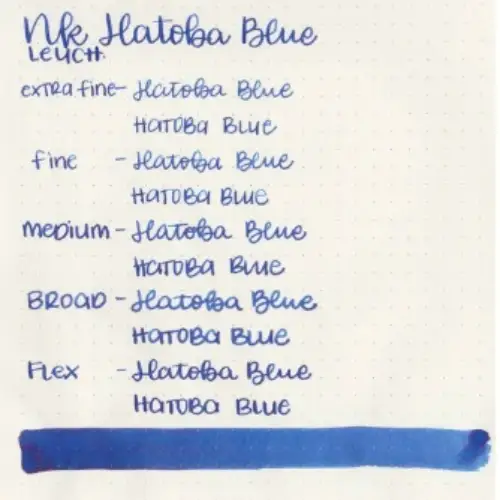 NK Hatoba Blue
LEUCHT.
extra fine - Hatoba Blue
HaTOBa BLUE
fine - Hatoba Blue
HaTOBa BLUE
meDium - Hatoba Blue
HaTOBa BLUE
BROaD - Hatoba Blue
HaTOBa BLUE
FLex - Hatoba Blue
HaTOBa BLUE